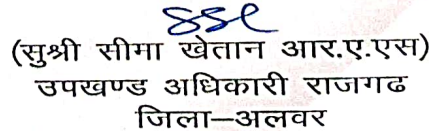 (सुश्री सीमा खेतान आर.ए.एस)
उपखण्ड अधिकारी राजगढ
जिला–अलवर